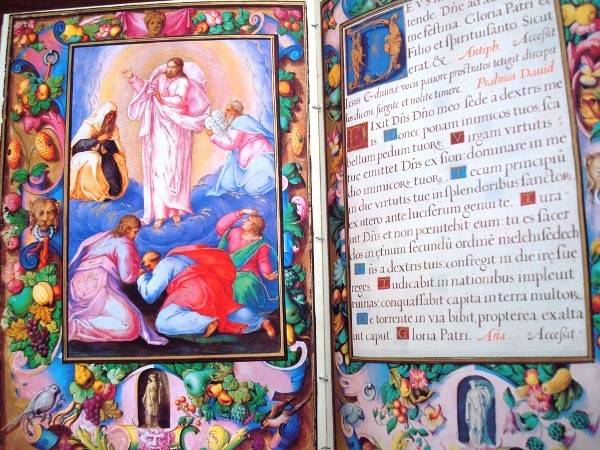 EVS in
tende. Dñe ad
me festina. Gloria Patri et
Filio et spiritui sancto. Sicut
erat. & Antiph. Accessit
Iesus & diuina vocis pauore prostratos tetigit discipu
los dicens surgite et nolite timere. Psalmus Dauid
DIXIT Dñs Dño meo sede a dextris me
is. Donec ponam inimicos tuos, sca
bellum pedum tuorꝝ. Virgam virtutis
tuę emittet Dñs ex sion: dominare in me
dio inimicorꝝ tuorꝝ. Tecum principiũ
in die virtutis tuę in splendoribus sanctorꝝ
ex utero ante luciferum genui te. Iura
uit Dñs et non pœnitebit eum: tu es sacer
dos in ęternũ secundũ ordinẽ melchisedech
Dñs a dextris tuis: confregit in die irę suę
reges. Iudicabit in nationibus impleuit
ruinas: conquassabit capita in terra multorꝝ
De torrente in via bibit, propterea exalta
uit caput. Gloria Patri. Ana. Accessit